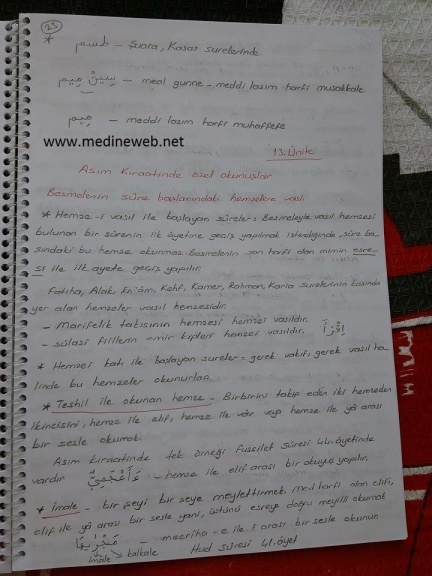 23
* طسم – Şuara, Kasas surelerinde
سِينْ مِيم – meal gunne – meddi lazım harfi musakkale
مِيم – meddi lazım harfi muhaffefe
www.medineweb.net
13. Ünite
Asım Kıraatinde özel okunuşlar
Besmelenin sûre başlarındaki hemzelere vaslı
* Hemze-i vasıl ile başlayan sûreler: Besmeleyle vasıl hemzesi
bulunan bir sûrenin ilk âyetine geçiş yapılmak istendiğinde, sûre ba-
şındaki bu hemze okunmaz. Besmelenin son harfi olan mimin esre-
si ile ilk ayete geçiş yapılır.
Fatiha, Alak, En'âm, Kehf, Kamer, Rahman, Karia surelerinin başında
yer alan hemzeler vasıl hemzesidir.
– Marifelik takısının hemzesi hemzei vasıldır.
– sülasi fiillerin emir kipleri hemzei vasıldır. اِقْرَأْ
* Hemzei katı ile başlayan sureler = gerek vakıf, gerek vasıl ha-
linde bu hemzeler okunurlar.
* Teshil ile okunan hemze – Birbirini takip eden iki hemzeden
ikincisini, hemze ile elif, hemze ile vâv veya hemze ile yâ arası
bir sesle okumak.
Asım kıraatinde tek örneği Fussilet Sûresi 44. âyetinde
vardır ءَاَعْجَمِيٌّ – hemze ile elif arası bir okuyuş yapılır.
* İmale – bir şeyi bir şeye meylettirmek. Med harfi olan elifi,
elif ile yâ arası bir sesle yani, üstünü esreye doğru meyilli okumak
مَجْرٰۭيهَا – mecriha – e ile i arası bir sesle okunur.
imale kalkale Hud sûresi 41. âyet